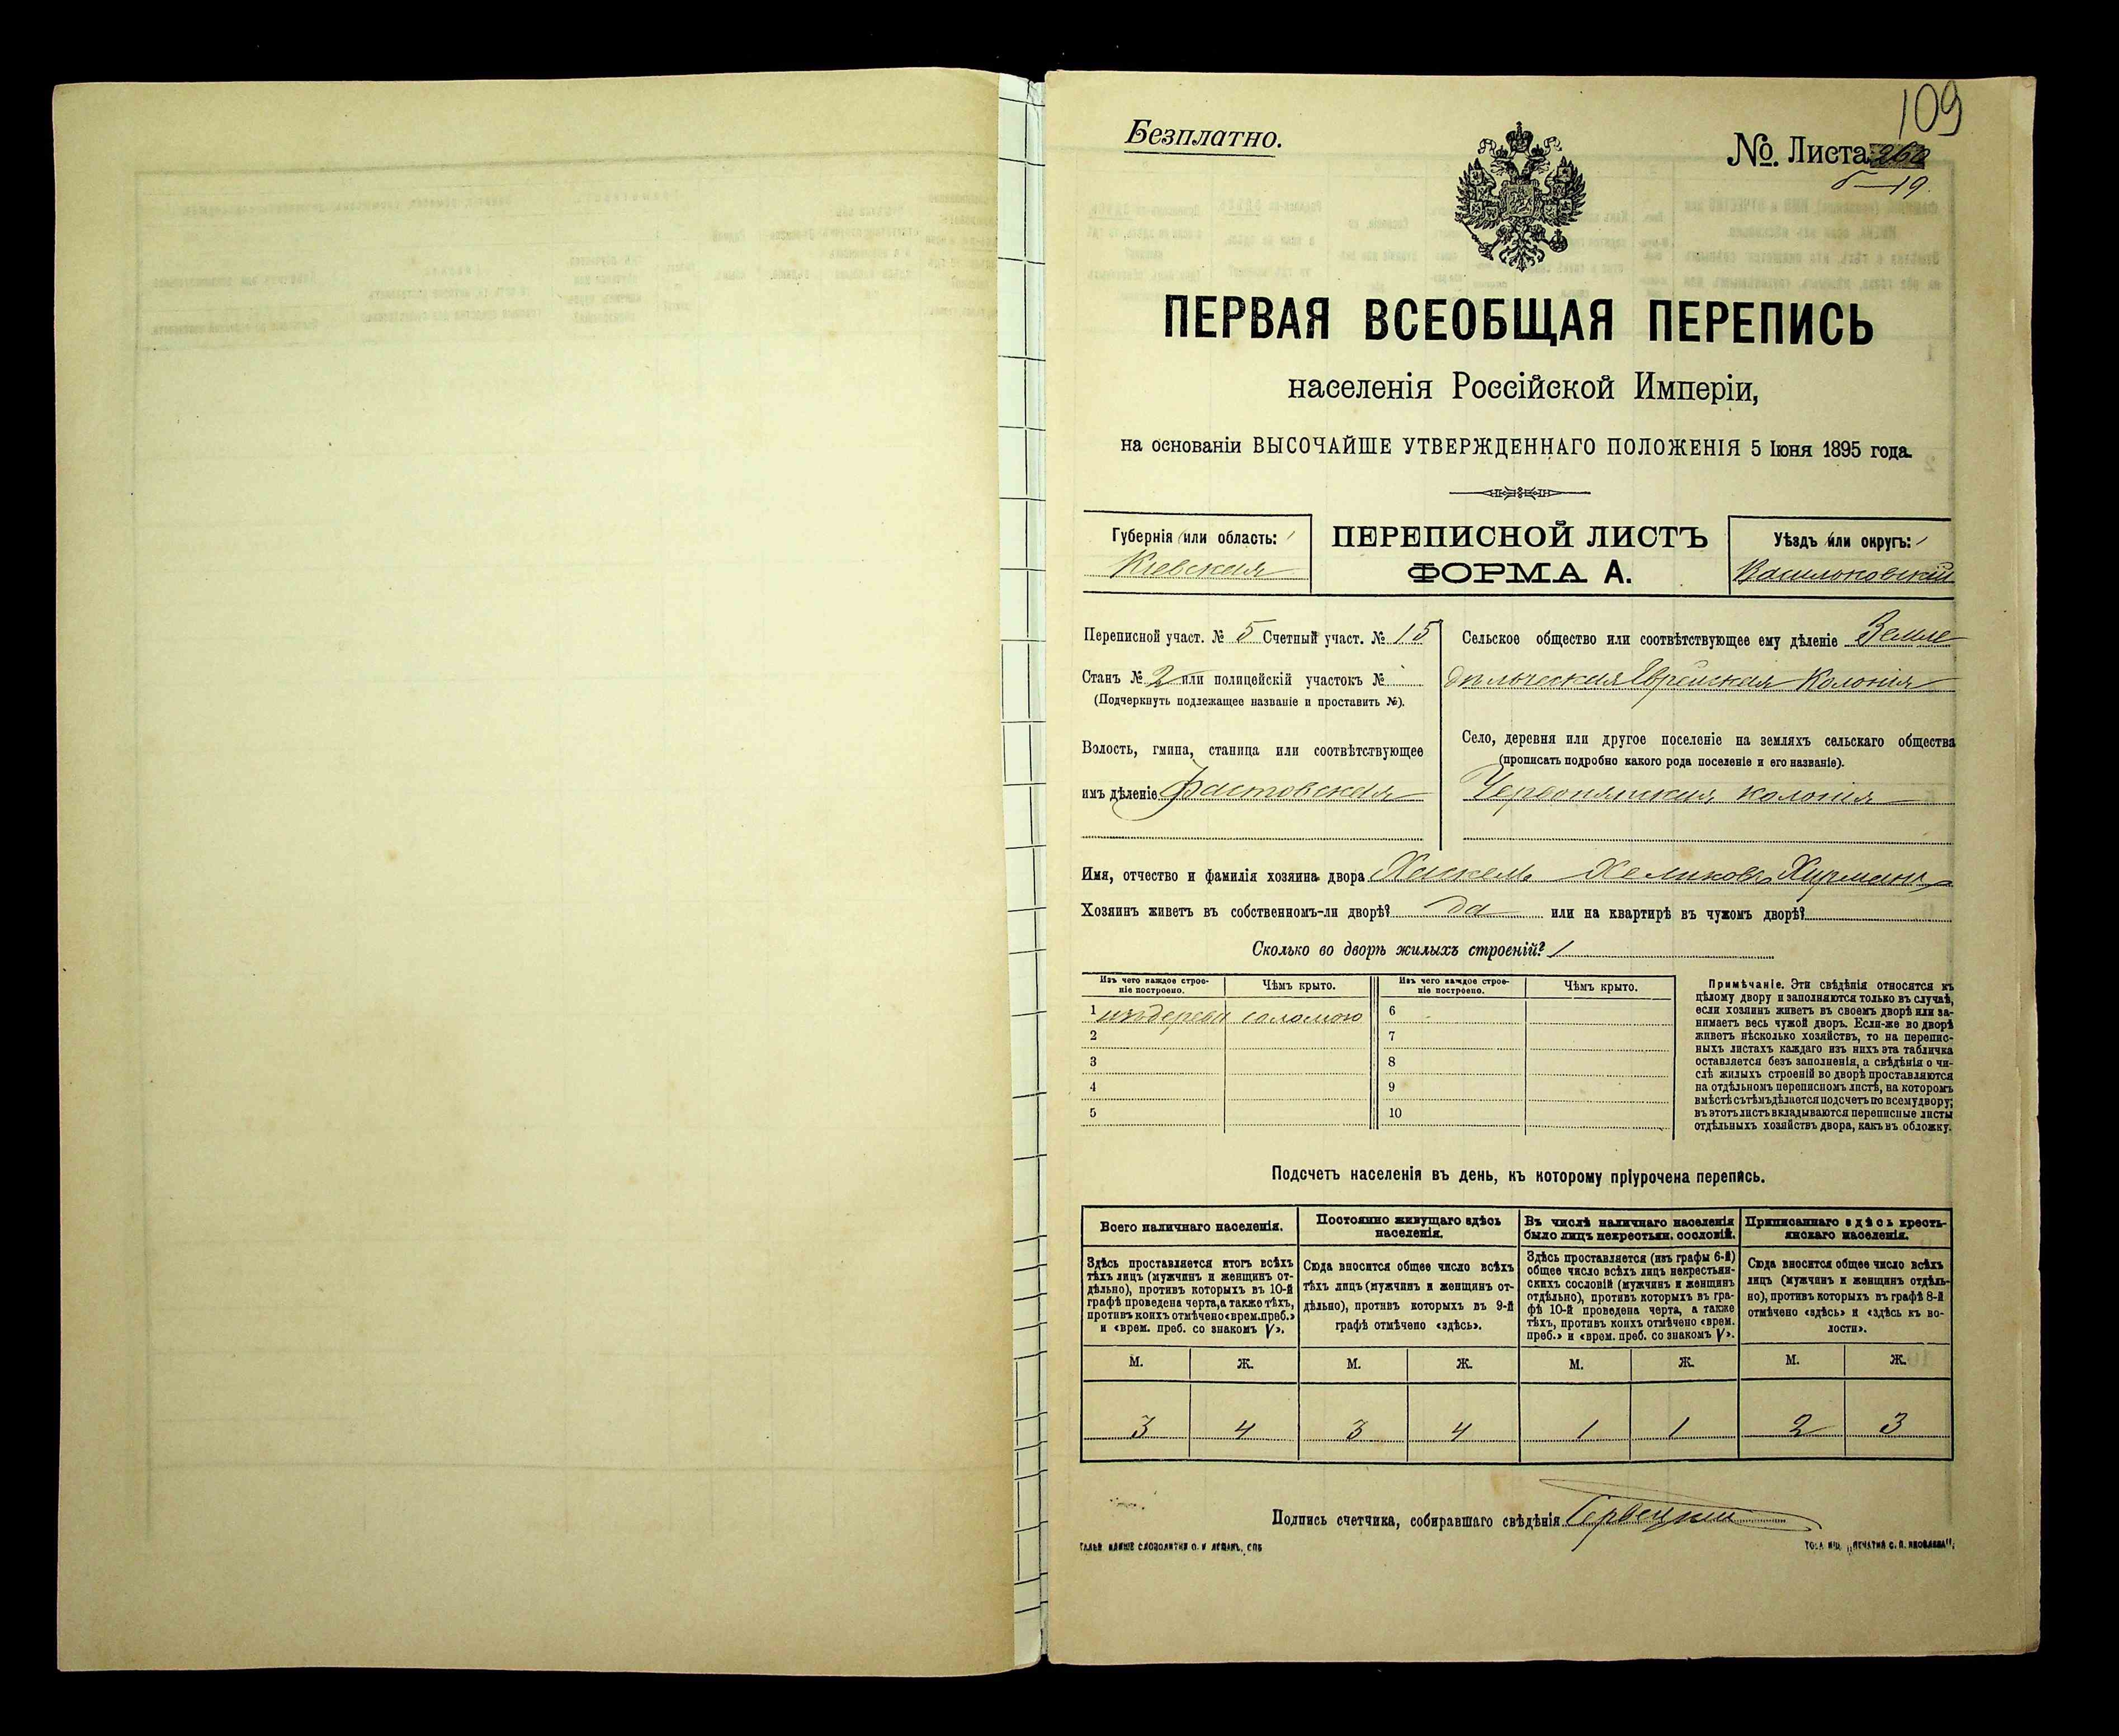 109
Безплатно.
№ Листа
19.
ПЕРВАЯ ВСЕОБЩАЯ ПЕРЕПИСЬ
населенія Россійской Имперіи,
на основаніи ВЫСОЧАЙШЕ УТВЕРЖДЕННАГО ПОЛОЖЕНІЯ 5 Іюня 1895 года.
Губернія или область:
Кіевская
ПЕРЕПИСНОЙ ЛИСТЪ
ФОРМА А.
Уѣздъ или округъ:
Васильковскій
Переписной участ. № 5 Счетный участ. № 15
Станъ № 2 или полицейскій участокъ №
(Подчеркнуть подлежащее названіе и проставить №).
Волость, гмина, станица или соотвѣтствующее
имъ дѣленіе Фастовская
Сельское общество или соотвѣтствующее ему дѣленіе Земле
дѣльческая Еврейская Колонія
Село, деревня или другое поселеніе на земляхъ сельскаго общества
(прописать подробно какого рода поселеніе и его названіе).
колонія
Имя, отчество и фамилія хозяина двора Хаскель
Хозяинъ живетъ въ собственномъ-ли дворѣ? да или на квартирѣ въ чужомъ дворѣ?
Сколько во дворѣ жилыхъ строеній? 1
Изъ чего каждое строе-
ніе построено.
Чѣмъ крыто.
Изъ чего каждое строе-
ніе построено.
Чѣмъ крыто.
1 изъ дерева соломою 6
2 7
3 8
4 9
5 10
Примѣчаніе. Эти свѣдѣнія относятся къ
цѣлому двору и заполняются только въ случаѣ,
если хозяинъ живетъ въ своемъ дворѣ или за-
нимаетъ весь чужой дворъ. Если-же во дворѣ
живетъ нѣсколько хозяйствъ, то на перепис-
ныхъ листахъ каждаго изъ нихъ эта табличка
оставляется безъ заполненія, а свѣдѣнія о чи-
слѣ жилыхъ строеній во дворѣ проставляются
на отдѣльномъ переписномъ листѣ, на которомъ
вмѣстѣ съ тѣмъ дѣлается подсчетъ по всему двору;
въ этотъ листъ вкладываются переписные листы
отдѣльныхъ хозяйствъ двора, какъ въ обложку.
Подсчетъ населенія въ день, къ которому пріурочена перепись.
Всего наличнаго населенія.
Здѣсь проставляется итогъ всѣхъ
тѣхъ лицъ (мужчинъ и женщинъ от-
дѣльно), противъ которыхъ въ 10-й
графѣ проведена черта, а также тѣхъ,
противъ коихъ отмѣчено «врем. преб.»
и «врем. преб. со знакомъ V».
Постоянно живущаго здѣсь
населенія.
Сюда вносится общее число всѣхъ
тѣхъ лицъ (мужчинъ и женщинъ от-
дѣльно), противъ которыхъ въ 9-й
графѣ отмѣчено «здѣсь».
Въ числѣ наличнаго населенія
было лицъ некрестьян. сословій.
Здѣсь проставляется (изъ графы 6-й)
общее число всѣхъ лицъ некрестьян-
скихъ сословій (мужчинъ и женщинъ
отдѣльно), противъ которыхъ въ гра-
фѣ 10-й проведена черта, а также
тѣхъ, противъ коихъ отмѣчено «врем.
преб.» и «врем. преб. со знакомъ V».
Приписаннаго здѣсь кресть-
янскаго населенія.
Сюда вносится общее число всѣхъ
лицъ (мужчинъ и женщинъ отдѣль-
но), противъ которыхъ въ графѣ 8-й
отмѣчено «здѣсь» и «здѣсь къ во-
лости».
М. Ж. М. Ж. М. Ж. М. Ж.
3 4 3 4 1 1 2 3
Подпись счетчика, собиравшаго свѣдѣнія